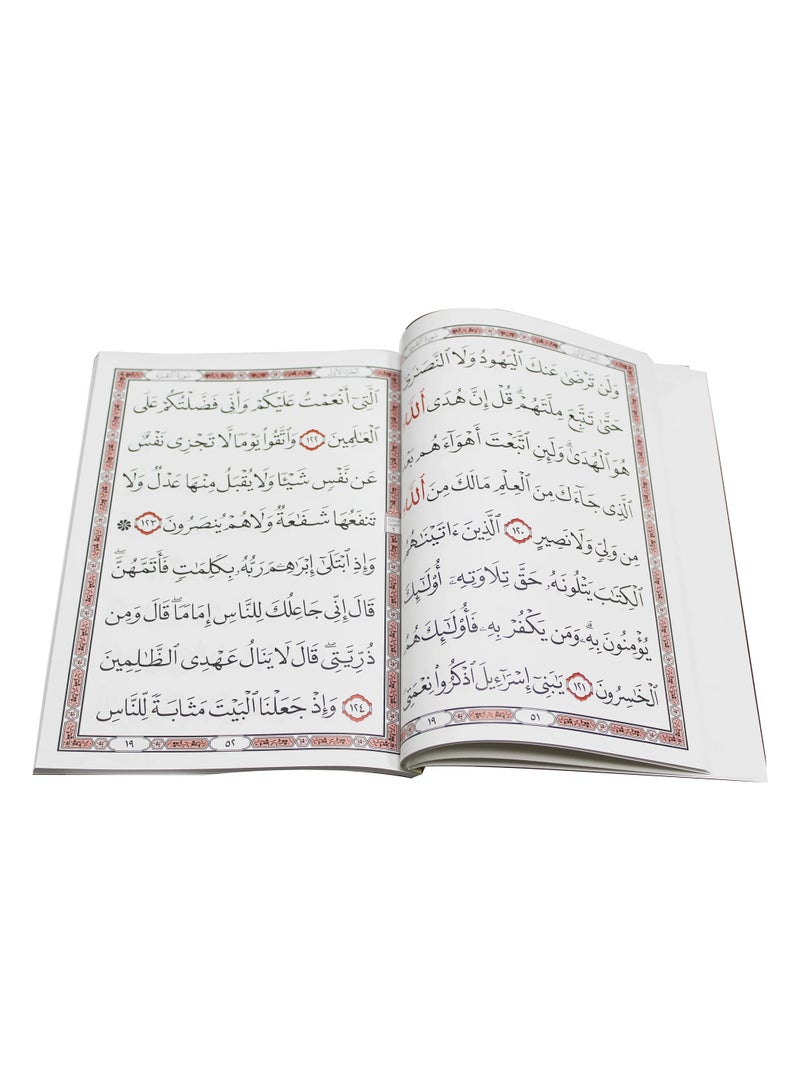 سورة البقرة
الجزء الأول
وَلَن تَرْضَىٰ عَنكَ ٱلْيَهُودُ وَلَا ٱلنَّصَـٰرَىٰ
حَتَّىٰ تَتَّبِعَ مِلَّتَهُمْ ۗ قُلْ إِنَّ هُدَى ٱللَّهِ
هُوَ ٱلْهُدَىٰ ۗ وَلَئِنِ ٱتَّبَعْتَ أَهْوَآءَهُم
ٱلَّذِى جَآءَكَ مِنَ ٱلْعِلْمِ مَا لَكَ مِنَ ٱللَّهِ
مِن وَلِىٍّ وَلَا نَصِيرٍ ١٢٠ ٱلَّذِينَ ءَاتَيْنَـٰهُمُ
ٱلْكِتَـٰبَ يَتْلُونَهُۥ حَقَّ تِلَاوَتِهِۦٓ أُو۟لَـٰٓئِكَ
يُؤْمِنُونَ بِهِۦ ۗ وَمَن يَكْفُرْ بِهِۦ فَأُو۟لَـٰٓئِكَ هُمُ
ٱلْخَـٰسِرُونَ ١٢١ يَـٰبَنِىٓ إِسْرَٰٓءِيلَ ٱذْكُرُوا۟ نِعْمَتِىَ
٥١
١٩
سورة البقرة
الجزء الأول
ٱلَّتِىٓ أَنْعَمْتُ عَلَيْكُمْ وَأَنِّى فَضَّلْتُكُمْ عَلَى
ٱلْعَـٰلَمِينَ ١٢٢ وَٱتَّقُوا۟ يَوْمًا لَّا تَجْزِى نَفْسٌ
عَن نَّفْسٍ شَيْـًٔا وَلَا يُقْبَلُ مِنْهَا عَدْلٌ وَلَا
تَنفَعُهَا شَفَـٰعَةٌ وَلَا هُمْ يُنصَرُونَ ١٢٣ ۞
وَإِذِ ٱبْتَلَىٰٓ إِبْرَٰهِـۧمَ رَبُّهُۥ بِكَلِمَـٰتٍ فَأَتَمَّهُنَّ ۖ
قَالَ إِنِّى جَاعِلُكَ لِلنَّاسِ إِمَامًا ۖ قَالَ وَمِن
ذُرِّيَّتِى ۖ قَالَ لَا يَنَالُ عَهْدِى ٱلظَّـٰلِمِينَ
١٢٤ وَإِذْ جَعَلْنَا ٱلْبَيْتَ مَثَابَةً لِّلنَّاسِ
٥٢
١٩